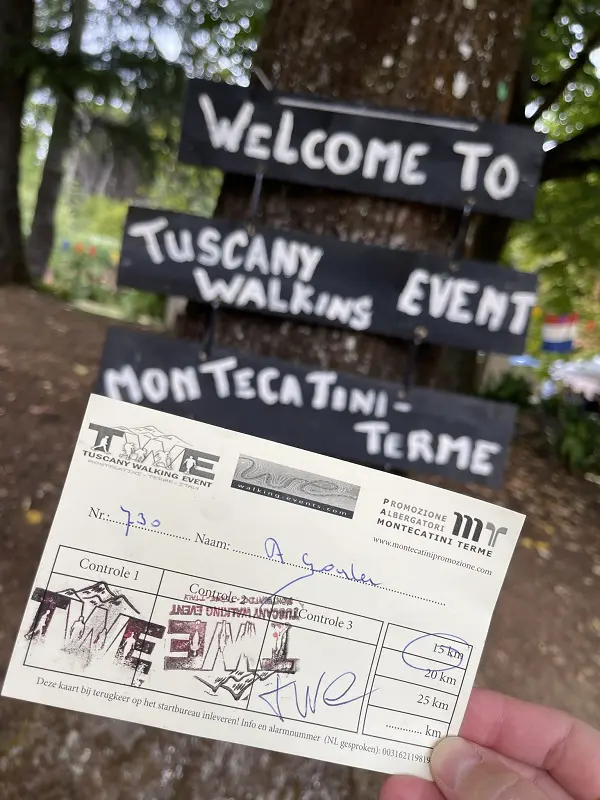 WELCOME TO
TUSCANY
WALKING EVENT
MONTECATINI-
TERME
TWE
TUSCANY WALKING EVENT
MONTECATINI - TERME - ITALI
we
walking-events.com
PROMOZIONE
ALBERGATORI
MONTECATINI TERME
www.montecatinipromozione.com
Nr. 730 Naam: A
Controle 1
Controle 2
Controle 3
15 km
20 km
25 km
km
TWE
TUSCANY WALKING EVENT
TWE
TWE
Deze kaart bij terugkeer op het startbureau inleveren! Info en alarmnummer (NL gesproken): 003162119819